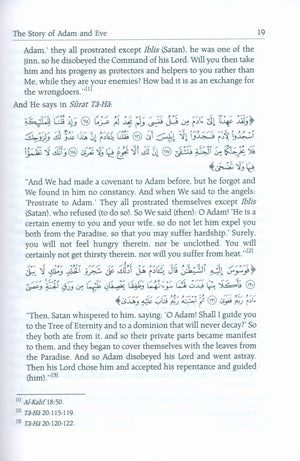 The Story of Adam and Eve 19
Adam,' they all prostrated except Iblis (Satan), he was one of the
jinn, so he disobeyed the Command of his Lord. Will you then take
him and his progeny as protectors and helpers to you rather than
Me, while they are your enemies? How bad it is as an exchange for
the wrongdoers."[1]
And He says in Sūrat Tā-Hā:
﴿وَلَقَدْ عَهِدْنَا إِلَىٰ ءَادَمَ مِن قَبْلُ فَنَسِيَ وَلَمْ نَجِدْ لَهُ عَزْمًا ﴿١١٥﴾ وَإِذْ قُلْنَا لِلْمَلَٰٓئِكَةِ
ٱسْجُدُوا۟ لِءَادَمَ فَسَجَدُوٓا۟ إِلَّآ إِبْلِيسَ أَبَىٰ ﴿١١٦﴾ فَقُلْنَا يَٰٓـَٔادَمُ إِنَّ هَٰذَا عَدُوٌّ لَّكَ وَلِزَوْجِكَ
فَلَا يُخْرِجَنَّكُمَا مِنَ ٱلْجَنَّةِ فَتَشْقَىٰٓ ﴿١١٧﴾ إِنَّ لَكَ أَلَّا تَجُوعَ فِيهَا وَلَا تَعْرَىٰ ﴿١١٨﴾ وَأَنَّكَ لَا تَظْمَؤُا۟
فِيهَا وَلَا تَضْحَىٰ﴾
"And We had made a covenant to Adam before, but he forgot and
We found in him no constancy. And when We said to the angels:
'Prostrate to Adam.' They all prostrated themselves except Iblis
(Satan), who refused (to do so). So We said (then): O Adam! 'He is a
certain enemy to you and your wife, so do not let him expel you
both from the Paradise, so that you may suffer hardship.' Surely,
you will not feel hungry therein, nor be unclothed. You will
certainly not get thirsty therein, nor will you suffer from heat."[2]
﴿فَوَسْوَسَ إِلَيْهِ ٱلشَّيْطَٰنُ قَالَ يَٰٓـَٔادَمُ هَلْ أَدُلُّكَ عَلَىٰ شَجَرَةِ ٱلْخُلْدِ وَمُلْكٍ لَّا يَبْلَىٰ
﴿١٢٠﴾ فَأَكَلَا مِنْهَا فَبَدَتْ لَهُمَا سَوْءَٰتُهُمَا وَطَفِقَا يَخْصِفَانِ عَلَيْهِمَا مِن وَرَقِ ٱلْجَنَّةِ وَعَصَىٰٓ
ءَادَمُ رَبَّهُ فَغَوَىٰ ﴿١٢١﴾ ثُمَّ ٱجْتَبَٰهُ رَبُّهُ فَتَابَ عَلَيْهِ وَهَدَىٰ﴾
"Then, Satan whispered to him, saying: 'O Adam! Shall I guide you
to the Tree of Eternity and to a dominion that will never decay?' So
they both ate from it, and so their private parts became manifest
to them, and they began to cover themselves with the leaves from
the Paradise. And so Adam disobeyed his Lord and went astray.
Then his Lord chose him and accepted his repentance and guided
(him)."[3]
[1] Al-Kahf 18:50.
[2] Tā-Hā 20:115-119.
[3] Tā-Hā 20:120-122.